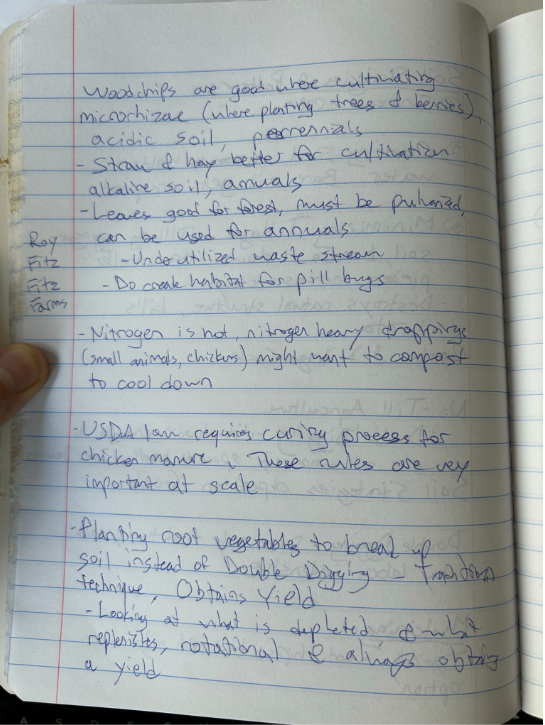 Woodchips are good where cultivating
microrhizae (where planting trees & berries),
acidic soil, perrennials
- Straw & hay better for cultivation
alkaline soil, annuals
- Leaves good for forest, must be pulverized,
can be used for annuals
- Under utilized waste stream
- Do create habitat for pill bugs
Roy
Fitz
Fitz
Farms
- Nitrogen is hot, nitrogen heavy droppings
(small animals, chickens) might want to compost
to cool down
- USDA law requires curing process for
chicken manure, These rules are very
important at scale
- Planting root vegetables to break up
soil instead of Double Digging -
technique, Obtains Yield
- Looking at what is depleted, & what
replenishes, rotational & always obtains
a yield